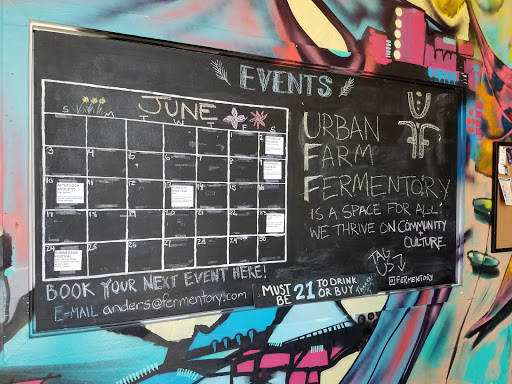 EVENTS
JUNE
S M T W T F S
1 2
3 4 5 6 7 8 9
10 11 12 13 14 15 16
17 18 19 20 21 22 23
24 25 26 27 28 29 30
BOOK YOUR NEXT EVENT HERE!
E-MAIL anders@fermentory.com
URBAN
FARM
FERMENTORY
IS A SPACE FOR ALL!
WE THRIVE ON COMMUNITY
+
CULTURE
TAG
US
@FERMENTORY
MUST BE 21 TO DRINK OR BUY